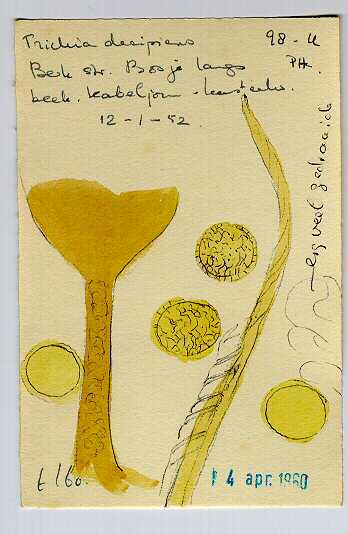 Trichia decipiens 98-U
Beek str. Bosje langs PH.
beek. Kabeljom
12-1-52.
erg veel gedraaid
t 160.
14 apr. 1960